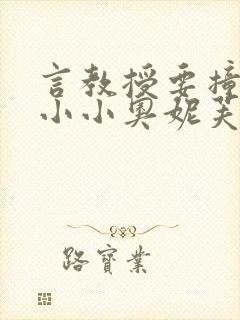 言教授要撞
小小奥妮芙
路寶業